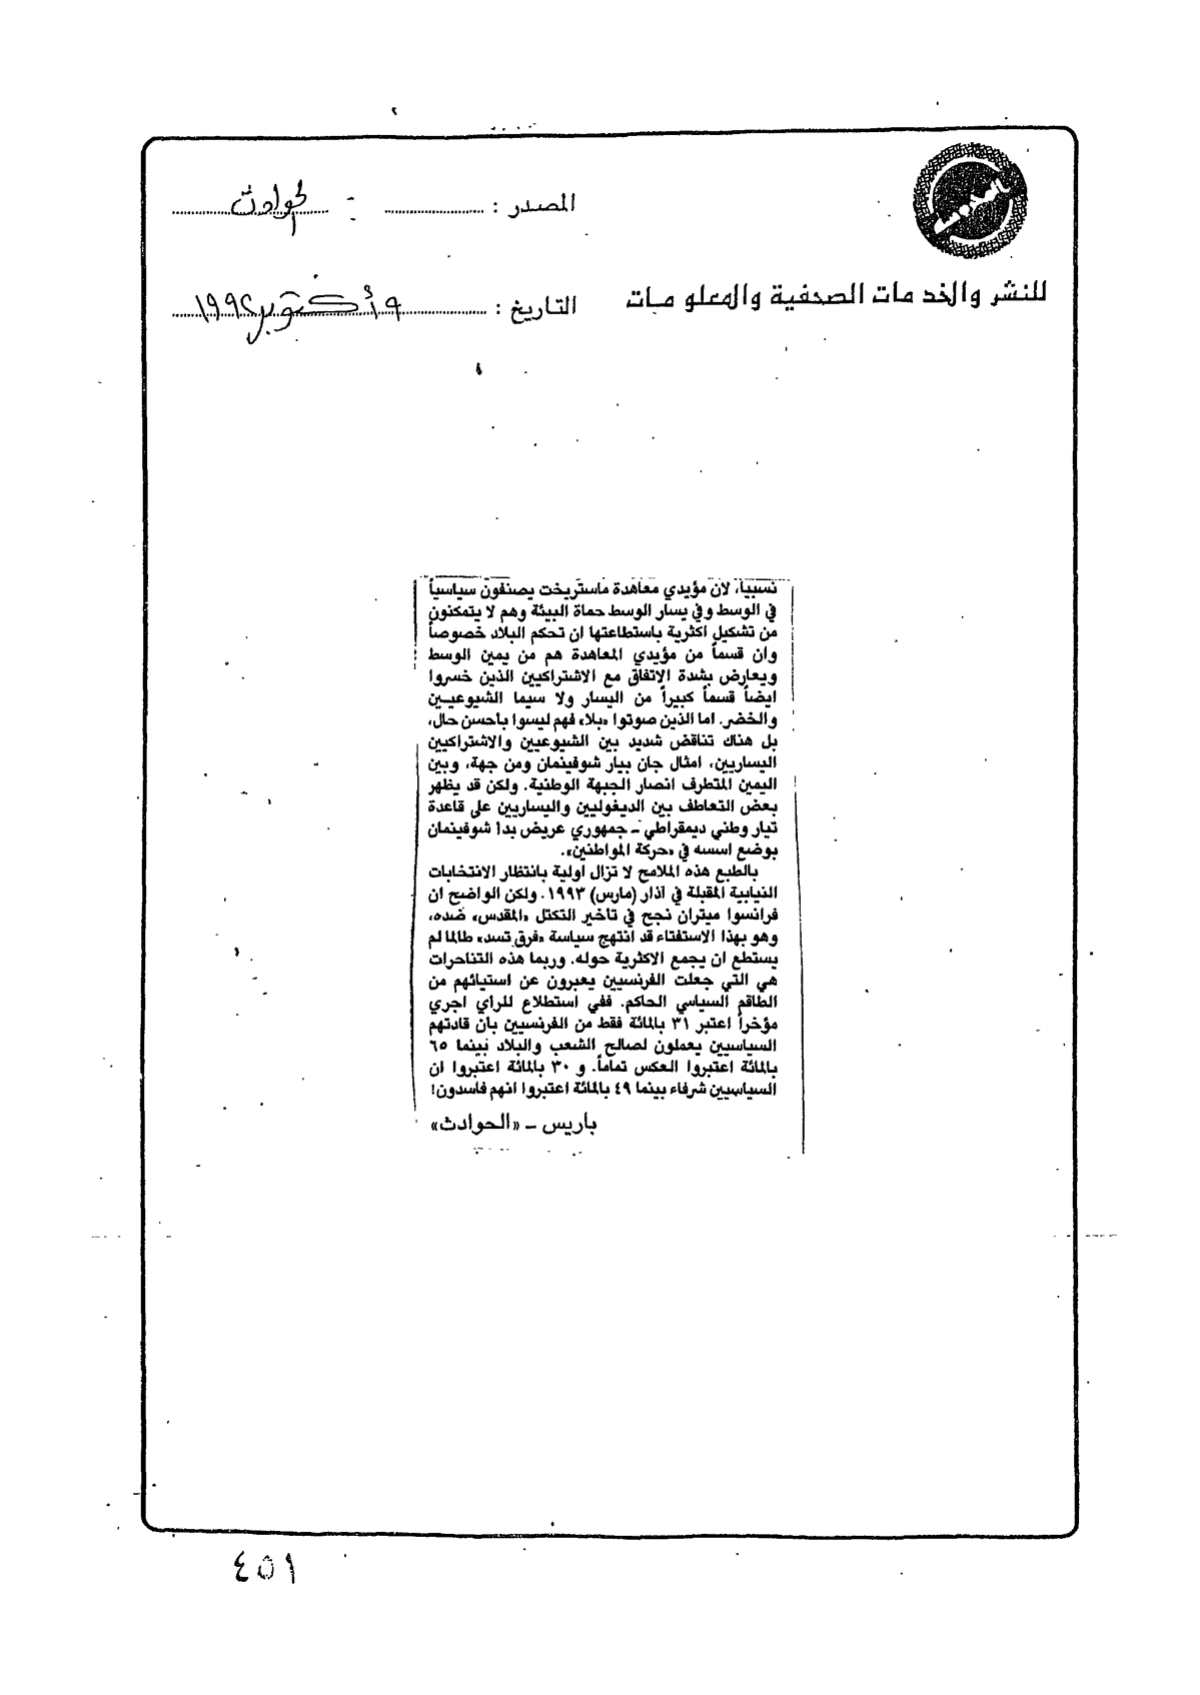 المصدر : الحوادث
للنشر والخد مات الصحفية والمعلو مات
التاريخ : ٩ أكتوبر ١٩٩٢
نسبياً، لان مؤيدي معاهدة ماستريخت يصنفون سياسياً
في الوسط وفي يسار الوسط حماة البيئة وهم لا يتمكنون
من تشكيل اكثرية باستطاعتها ان تحكم البلاد خصوصاً
وان قسماً من مؤيدي المعاهدة هم من يمين الوسط
ويعارض بشدة الاتفاق مع الاشتراكيين الذين خسروا
ايضاً قسماً كبيراً من اليسار ولا سيما الشيوعيين
والخضر. اما الذين صوتوا «بلا» فهم ليسوا باحسن حال،
بل هناك تناقض شديد بين الشيوعيين والاشتراكيين
اليساريين، امثال جان بيار شوفينمان ومن جهة، وبين
اليمين المتطرف انصار الجبهة الوطنية. ولكن قد يظهر
بعض التعاطف بين الديغوليين واليساريين على قاعدة
تيار وطني ديمقراطي ـ جمهوري عريض بدا شوفينمان
بوضع اسسه في «حركة المواطنين».
بالطبع هذه الملامح لا تزال اولية بانتظار الانتخابات
النيابية المقبلة في اذار (مارس) ١٩٩٣. ولكن الواضح ان
فرانسوا ميتران نجح في تاخير التكتل «المقدس» ضده،
وهو بهذا الاستفتاء قد انتهج سياسة «فرق تسد» طالما لم
يستطع ان يجمع الاكثرية حوله. وربما هذه التناحرات
هي التي جعلت الفرنسيين يعبرون عن استيائهم من
الطاقم السياسي الحاكم. ففي استطلاع للراي اجري
مؤخراً اعتبر ٣١ بالمائة فقط من الفرنسيين بان قادتهم
السياسيين يعملون لصالح الشعب والبلاد بينما ٦٥
بالمائة اعتبروا العكس تماماً. و ٣٠ بالمائة اعتبروا ان
السياسيين شرفاء بينما ٤٩ بالمائة اعتبروا انهم فاسدون!
باريس ـ «الحوادث»
٤٥١